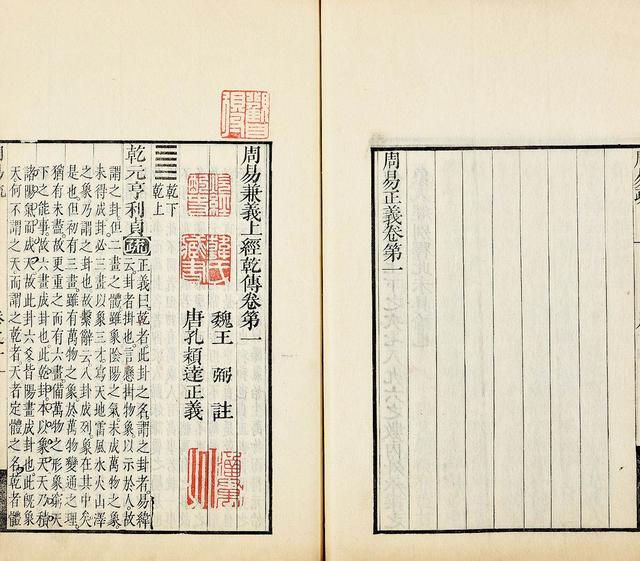 周易正義卷第一
周易兼義上經乾傳卷第一
魏王 弼 註
唐孔穎達正義
乾下
乾上
乾元亨利貞 疏 正義曰乾者此卦之名謂之卦者易緯
云卦者掛也言懸掛物象以示於人故
謂之卦但二畫之體雖象陰陽之氣未成萬物之象
未得成卦必三畫以象三才寫天地雷風水火山澤
之象乃謂之卦也故繫辭云八卦成列象在其中矣
是也但初有三畫雖有萬物之象於萬物變通之理
猶有未盡故更重之而有六畫備萬物之形象窮天
下之能事故六畫成卦也此乾卦本以象天天乃積
諸陽氣而成天故此卦六爻皆陽畫成卦也此既象
天何不謂之天而謂之乾者天者定體之名乾者體